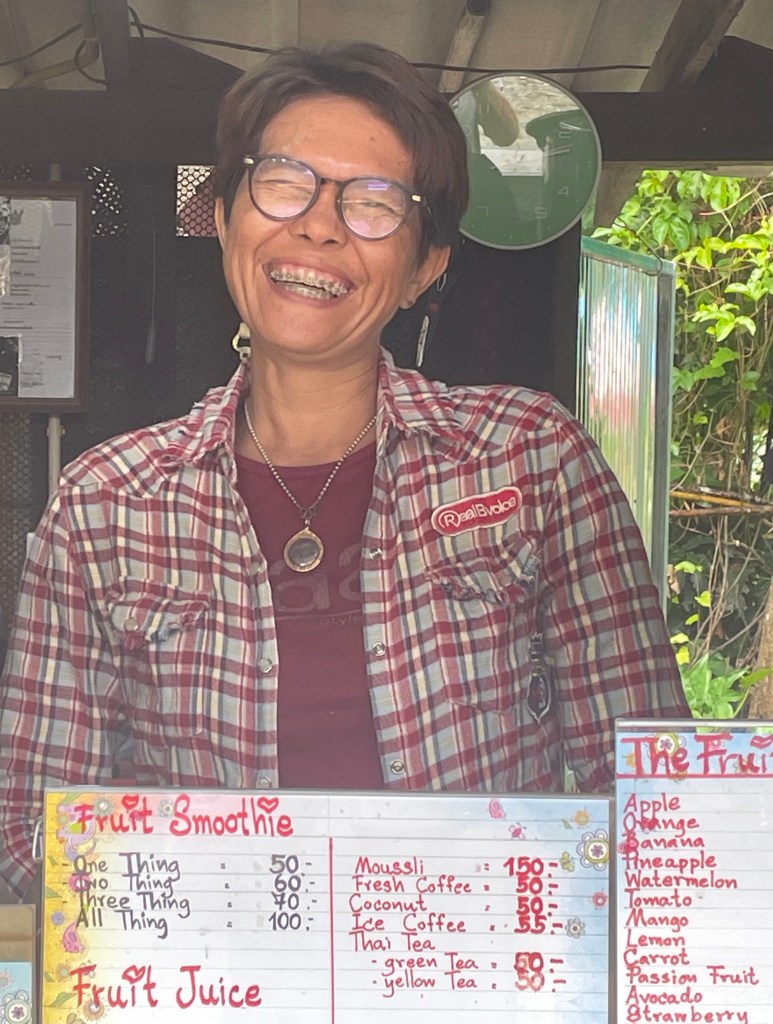 RealBvoice
Fruit Smoothie
- One Thing = 50.-
- Two Thing = 60.-
- Three Thing = 70.-
- All Thing = 100.-
Fruit Juice
Moussli = 150.-
Fresh Coffee = 50.-
Coconut = 50.-
Ice Coffee = 55.-
Thai Tea
- green Tea = 50.-
- yellow Tea = 50.-
The Frui
Apple
Orange
Banana
Pineapple
Watermelon
Tomato
Mango
Lemon
Carrot
Passion Fruit
Avocado
Strawberry